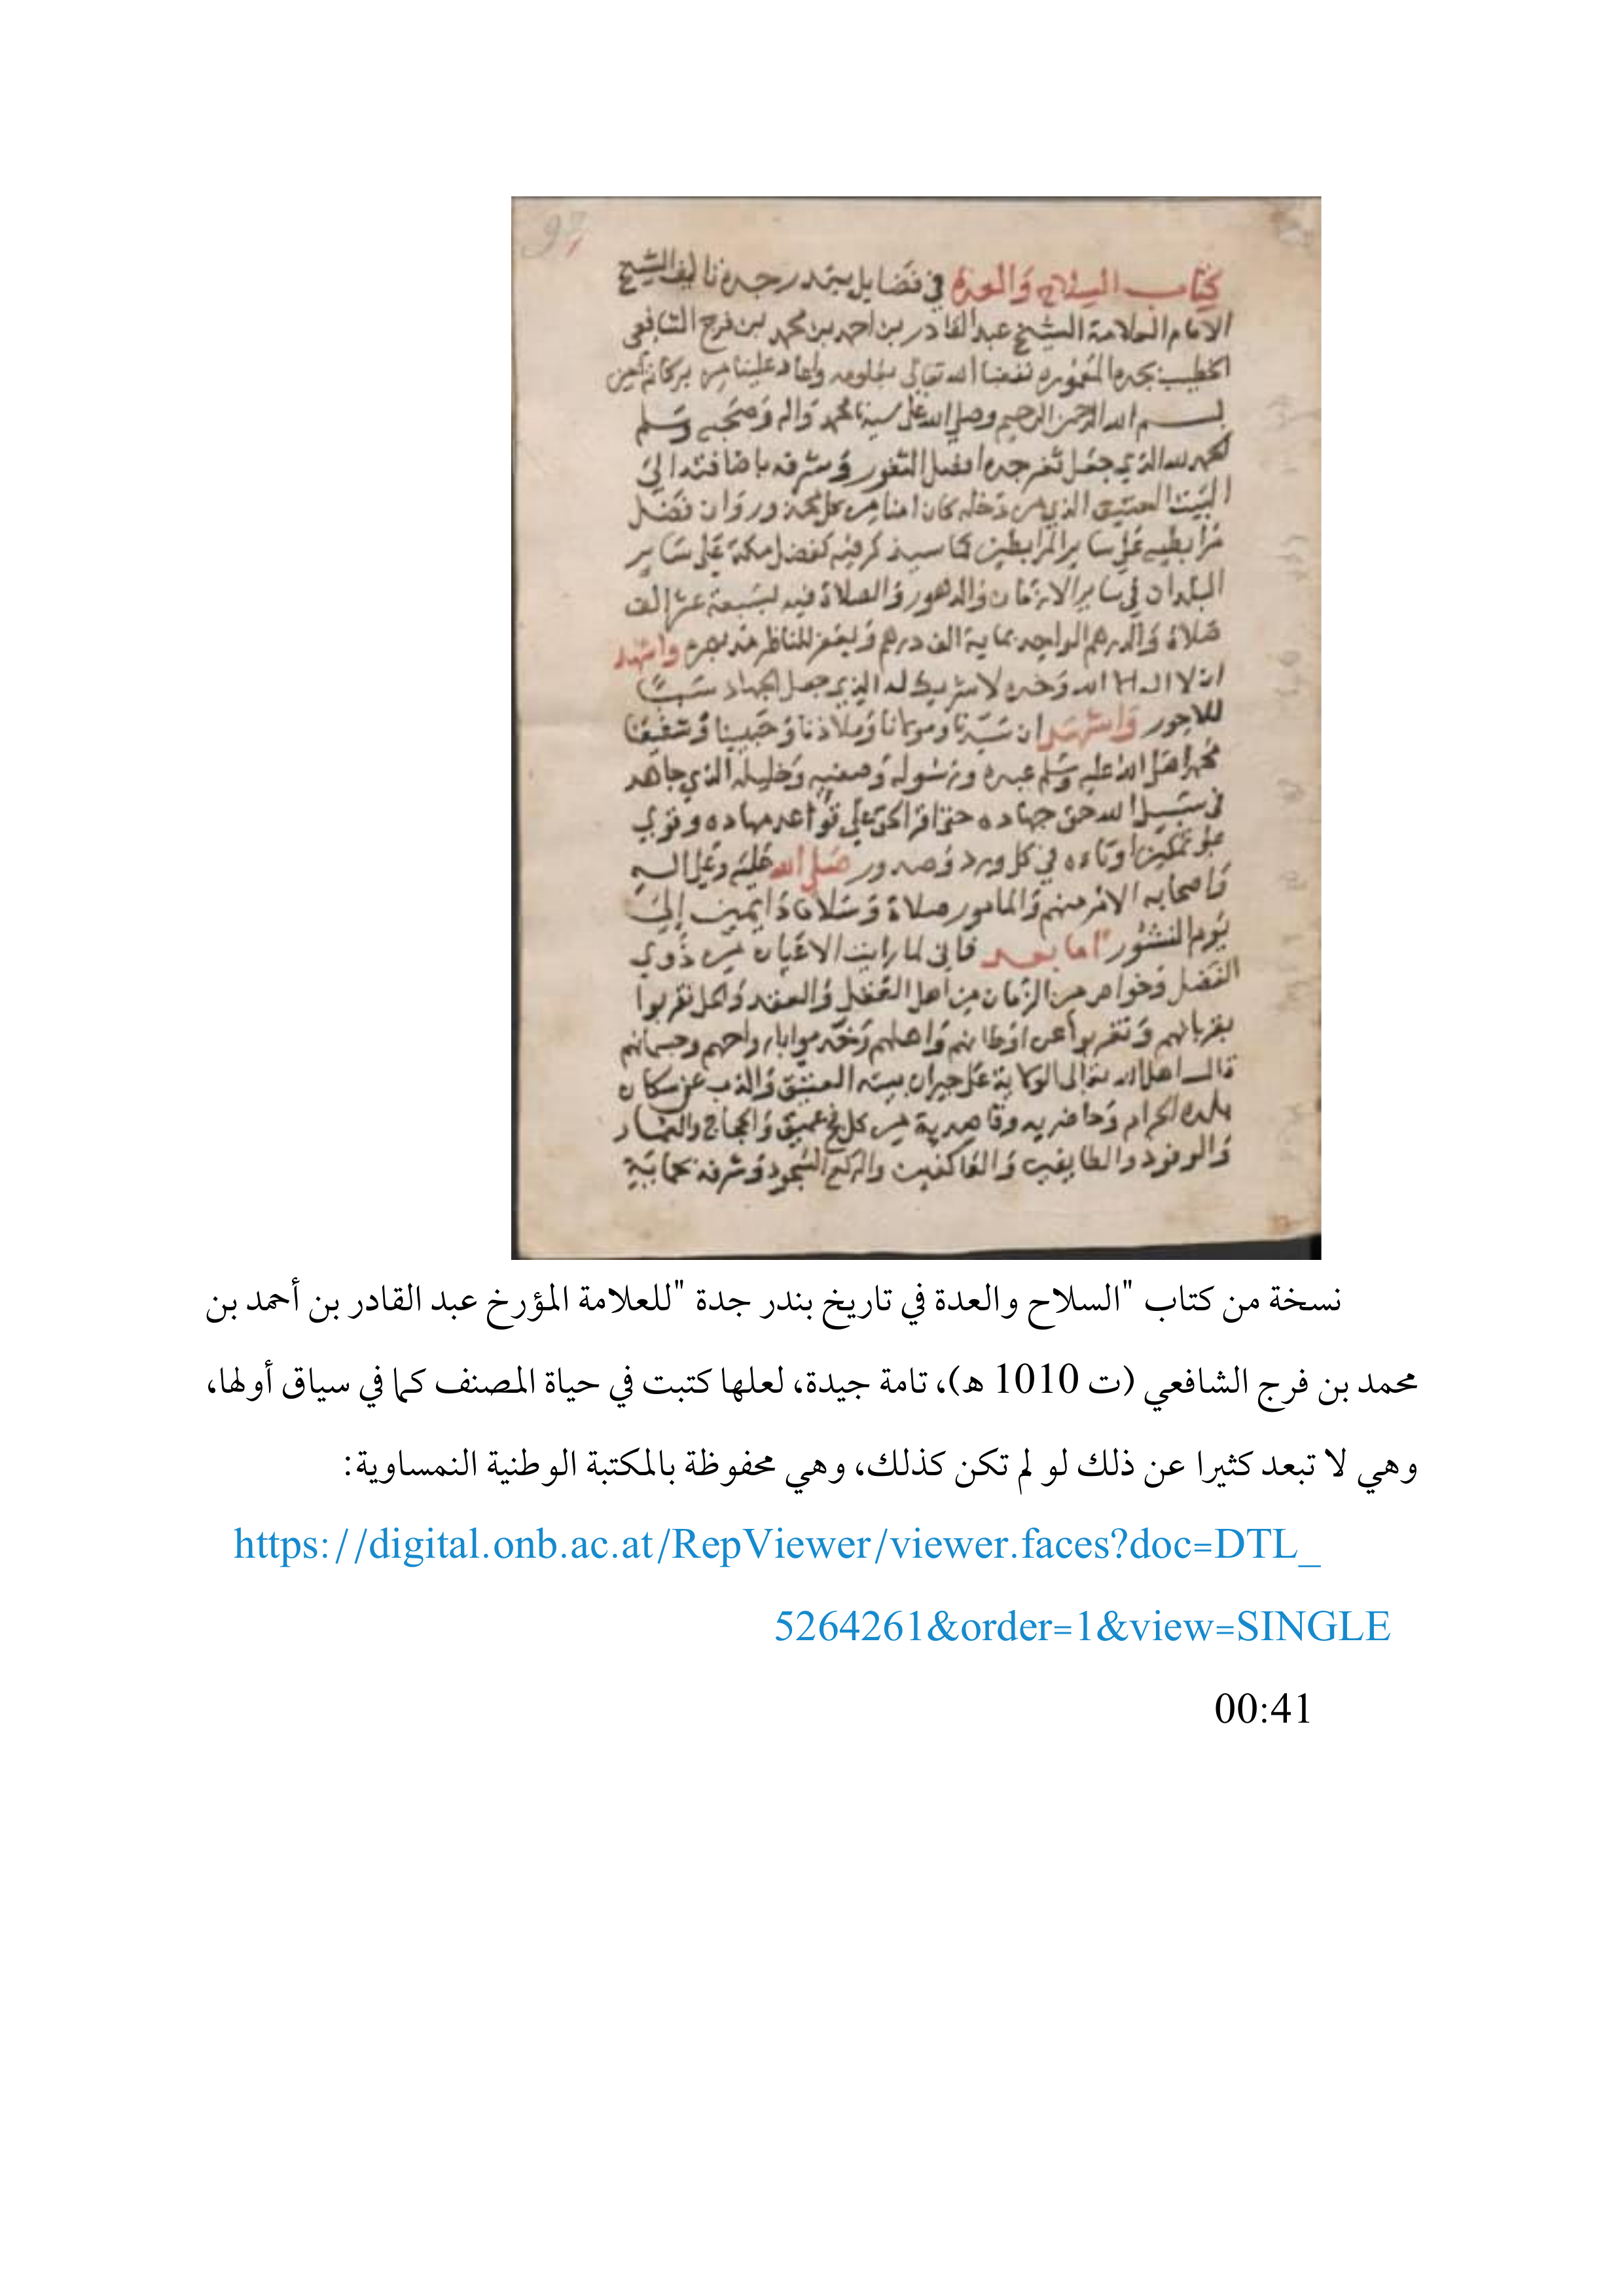 97
كتاب السلاح والعدة في فضايل بندر جده تاليف الشيخ
الامام العلامة الشيخ عبد القادر بن احمد بن محمد بن فرج الشافعي
الخطيب بجده المعموره نفعنا الله تعالى بعلومه واعاد علينا من بركاته امين
بسم الله الرحمن الرحيم وصلي الله على سيدنا محمد واله وصحبه وسلم
الحمد لله الذي جعل ثغر جده افضل الثغور وشرفه باضافته الى
البيت العتيق الذي من دخله كان امنا من كل وان فضل
مرابطيه على ساير المرابطين كما سيذكر فيه كفضل مكة على ساير
البلدان في ساير الازمان والدهور والصلاة فيه بسبعة عشر الف
صلاة والدرهم الواحد بماية الف درهم ويغفر للناظر مد بصره واشهد
ان لا اله الا الله وحده لا شريك له الذي جعل الجهاد سببا
للاجور واشهد ان سيدنا ومولانا وملاذنا وحبيبنا وشفيعنا
محمدا صلى الله عليه وسلم عبده ورسوله وصفيه وخليله الذي جاهد
في سبيل الله حق جهاده حتى اقر الحق على قواعد مهاده وقوي
اوتاده في كل ورد وصدور صلى الله عليه وعلى اله
واصحابه الامر منهم والمامور صلاة وسلاما دايمين إلى
يوم النشور اما بعد فاني لما رايت الاعيان من ذوي
الفضل وخواص من الزمان من اهل العقد والحل تقربوا
بقرباتهم وتغربوا عن اوطانهم واهلهم
العتيق والذب عن سكان
بلده الحرام وحاضريه وقاصديه من كل فج عميق والحجاج والتجار
والوفود والطايفين والعاكفين والركع السجود وشرفه بحماية
نسخة من كتاب "السلاح والعدة في تاريخ بندر جدة "للعلامة المؤرخ عبد القادر بن أحمد بن
محمد بن فرج الشافعي (ت 1010 هـ)، تامة جيدة، لعلها كتبت في حياة المصنف كما في سياق أولها،
وهي لا تبعد كثيرا عن ذلك لو لم تكن كذلك، وهي محفوظة بالمكتبة الوطنية النمساوية:
https://digital.onb.ac.at/RepViewer/viewer.faces?doc=DTL_
5264261&order=1&view=SINGLE
00:41